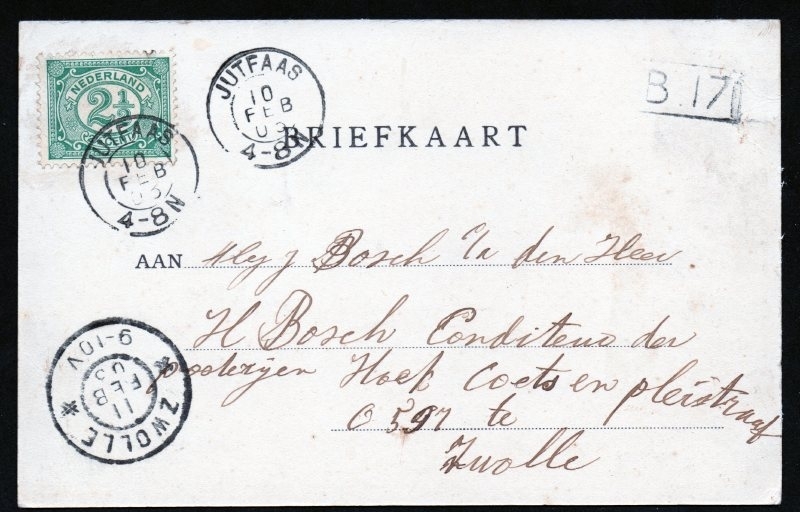 NEDERLAND
2½
JUTFAAS
10
FEB
03
4-8N
JUTFAAS
10
FEB
03
4-8N
B.17
BRIEFKAART
AAN Mej J Bosch t/a den Heer
H Bosch Conditeur der
Hoek Coets en pleistraat
O 597 te
Zwolle
ZWOLLE
11
FEB
03
9-10V